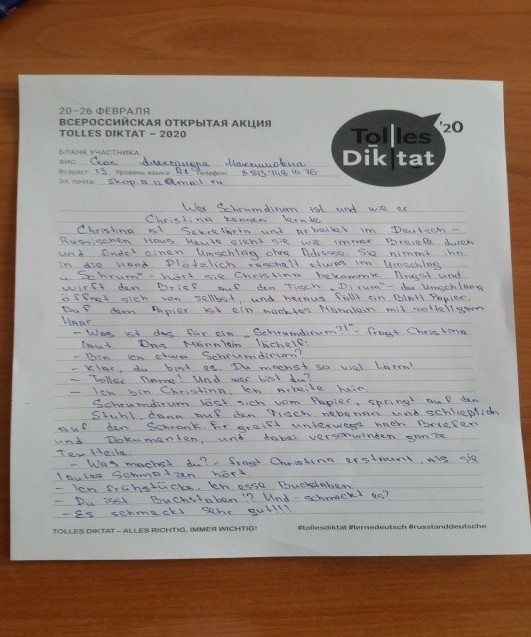 20–26 ФЕВРАЛЯ
ВСЕРОССИЙСКАЯ ОТКРЫТАЯ АКЦИЯ
TOLLES DIKTAT – 2020
Tolles
Diktat
'20
БЛАНК УЧАСТНИКА
ФИО Скоп Александра Максимовна
Возраст: 13 Уровень языка: A2 Телефон:
Эл. почта:
Wer Schrumdirum ist und wie er
Christina kennen lernte
Christina ist Sekretärin und arbeitet im Deutsch-
Russischen Haus Heute sieht sie wie immer Briefe durch
und findet einen Umschlag ohne Adresse. Sie nimmt ihn
in die Hand. Plötzlich raschelt etwas im Umschlag.
Schrum" - hört sie Christina bekommt Angst und
wirft den Brief auf den Tisch „Dirum" - der Umschlang
öffnet sich von selbst, und heraus fällt ein Blatt Papier.
Auf dem Papier ist ein nacktes Männlein mit
Haar
- Was ist das für ein „Schrumdirum?!" - fragt Christina
laut. Das Männlein lächelt:
- Bin ich etwa Schrumdirum?
- Klar, du bist es. Du machst so viel Lärm!
- Toller Name! Und wer bist du?
- Ich bin Christina, Ich arbeite hier.
Schrumdirum löst sich vom Papier, springt auf den
Stuhl, dann auf den Tisch nebenan und schließlich
auf den Schrank. Er greift unterwegs nach Briefen
und Dokumenten, und dabei verschwinden ganze
Textteile.
- Was machst du? - fragt Christina erstaunt, als sie
lautes Schmatzen hört
- Ich frühstücke. Ich esse Buchstaben
- Du isst Buchstaben? Und - schmeckt es?
- Es schmeckt sehr gut!!!
TOLLES DIKTAT – ALLES RICHTIG, IMMER WICHTIG!
#tollesdiktat #lernedeutsch #russlanddeutsche